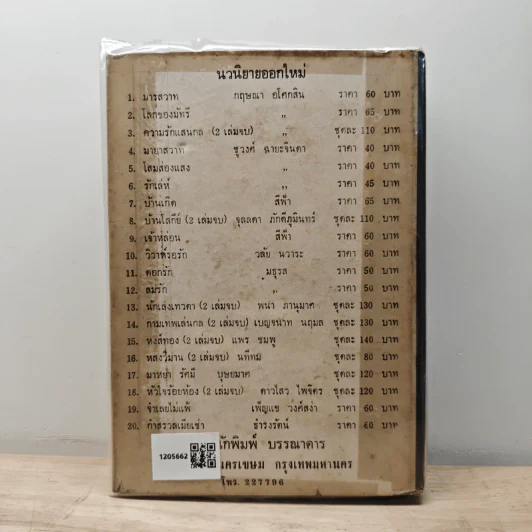 นวนิยายออกใหม่
1. มารสวาท กฤษณา อโศกสิน ราคา 60 บาท
2. โลกของมัทรี " ราคา 65 บาท
3. ความรักแสนกล (2 เล่มจบ) " ชุดละ 110 บาท
4. มายาสวาท ชูวงศ์ ฉายะจินดา ราคา 40 บาท
5. โสมส่องแสง " ราคา 40 บาท
6. รักเล่ห์ " ราคา 45 บาท
7. บ้านเกิด สีฟ้า ราคา 65 บาท
8. บ้านโลกีย์ (2 เล่มจบ) จุลลดา ภักดีภูมินทร์ ชุดละ 110 บาท
9. เจ้าหล่อน สีฟ้า ราคา 60 บาท
10. วิวาห์รอรัก วลัย นวาระ ราคา 60 บาท
11. ดอกรัก มธุรส ราคา 50 บาท
12. ลมรัก " ราคา 50 บาท
13. นักเลงเทวดา (2 เล่มจบ) พนา ภานุมาศ ชุดละ 130 บาท
14. กามเทพเล่นกล (2 เล่มจบ) เบญจนาท นฤมล ชุดละ 130 บาท
15. หงส์ทอง (2 เล่มจบ) แพร ชมพู ชุดละ 140 บาท
16. หลงวิมาน (2 เล่มจบ) นทีทมิ ชุดละ 80 บาท
17. มาหยา รัศมี บุษยมาศ ชุดละ 120 บาท
18. หัวใจร้อยห้อง (2 เล่มจบ) ดาวไสว ไพจิตร ชุดละ 120 บาท
19. จำเลยไม่แพ้ เพ็ญแข วงศ์สง่า ราคา 60 บาท
20. กำสรวลเมียเช่า ธำรงรัตน์ ราคา 60 บาท
พิมพ์ บรรณาคาร
นครเขษม กรุงเทพมหานคร
โทร. 227796
1205662